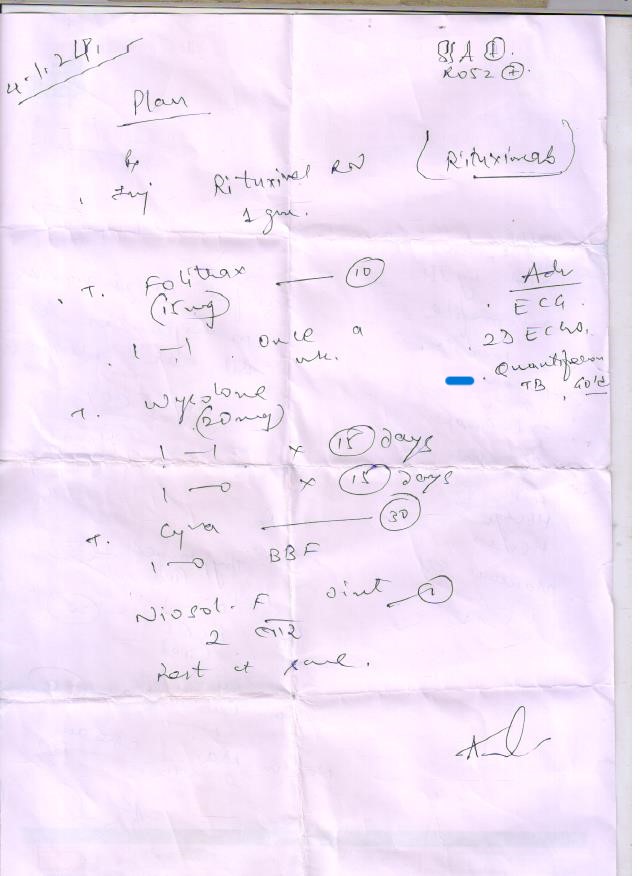 4.1.24.
SSA (+).
RO52 (+).
Plan
Rx
. Inj Rituxirel (Rituximab)
1 gm.
. T. Folitrax — (10)
(15mg)
1 — 1 . once a
wk.
Adv
. ECG.
. 2D ECHO.
. Quantiferon
TB Gold
T. Wysolone
(20mg)
1 — 1 x (15) days
1 — 0 x (15) days
T. Cyra — (30)
1 — 0 BBF
Niosol-F oint — (1)
2 बार
Rest at same.